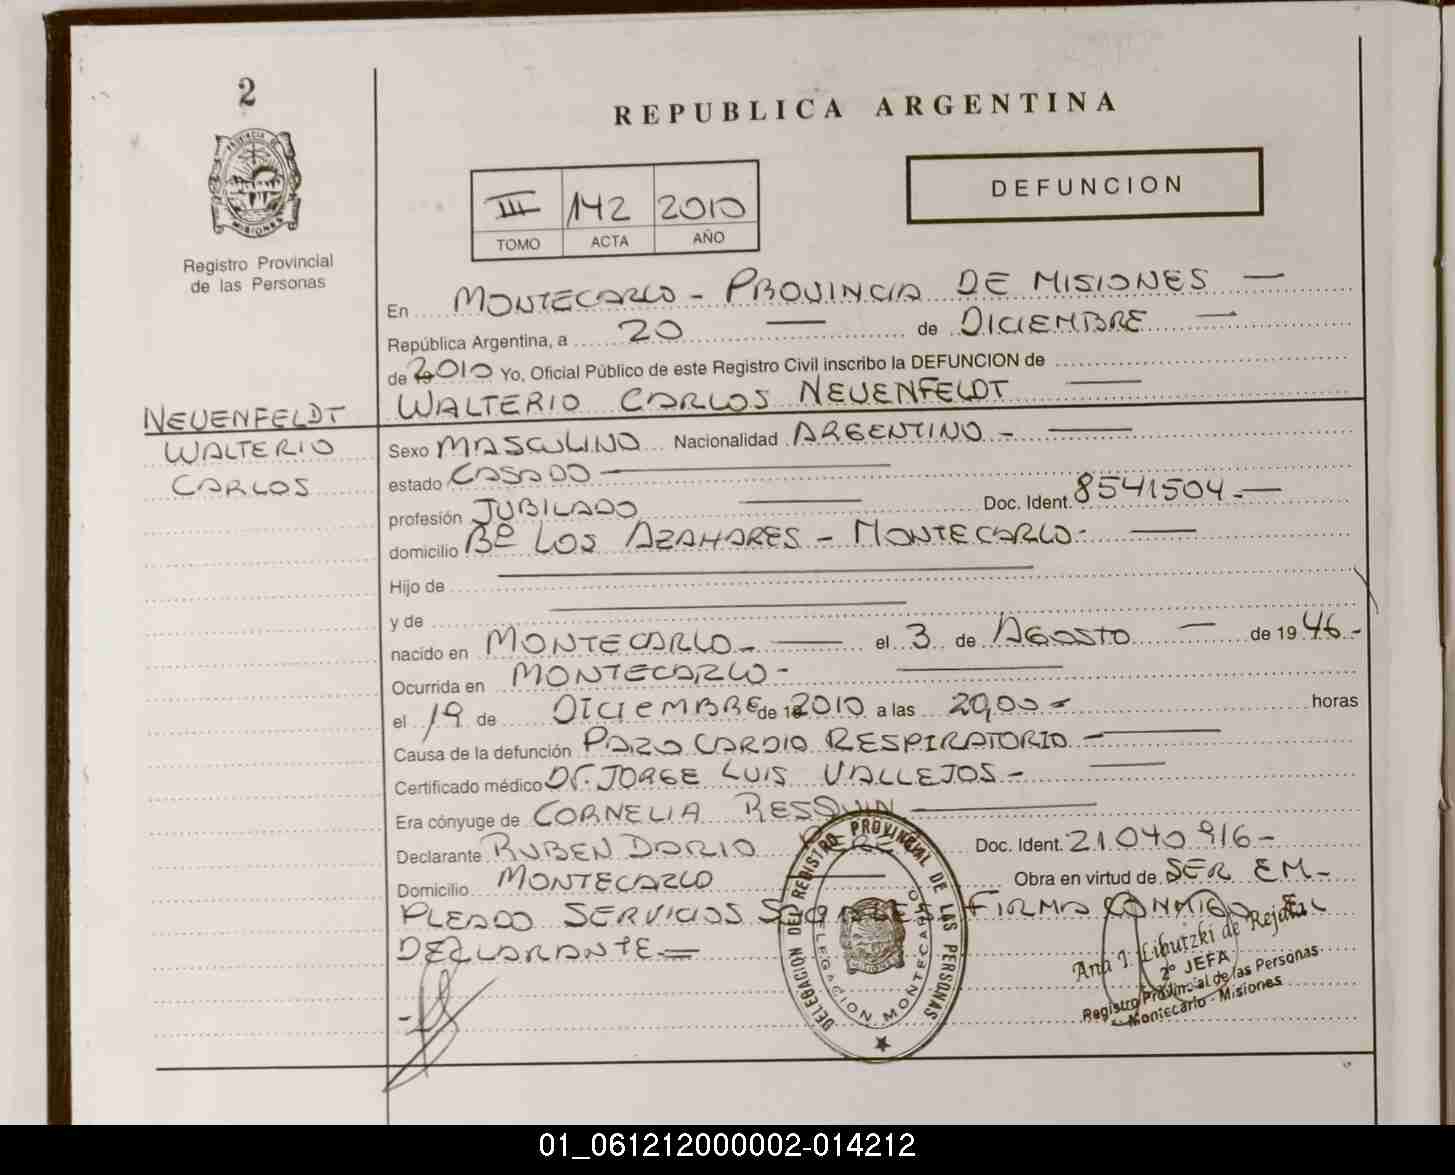 2
PROVINCIA DE
MISIONES
Registro Provincial
de las Personas
REPUBLICA ARGENTINA
III 142 2010
TOMO ACTA AÑO
DEFUNCION
En MONTECARLO - PROVINCIA DE MISIONES —
República Argentina, a 20 — de DICIEMBRE —
de 2010 Yo, Oficial Público de este Registro Civil inscribo la DEFUNCION de
NEUENFELDT WALTERIO CARLOS NEUENFELDT —
WALTERIO Sexo MASCULINO Nacionalidad ARGENTINO - —
CARLOS estado CASADO —
profesión JUBILADO — Doc. Ident. 8541504 - —
domicilio Bº LOS AZAHARES - MONTECARLO - —
Hijo de —
y de —
nacido en MONTECARLO - — el 3 de AGOSTO — de 19 46 -
Ocurrida en MONTECARLO - —
el 19 de DICIEMBRE de 2010 a las 20,00 - horas
Causa de la defunción PARO CARDIO RESPIRATORIO - —
Certificado médico Dr. JORGE LUIS VALLEJOS - —
Era cónyuge de CORNELIA RESQUIN —
Declarante RUBEN DARIO Doc. Ident. 21.040 916 -
Domicilio MONTECARLO — Obra en virtud de SER EM-
PLEADO SERVICIOS SOCIALES FIRMA CONMIGO EL
DECLARANTE =
DELEGACION DEL REGISTRO PROVINCIAL DE LAS PERSONAS
DELEGACION MONTECARLO
Ana I. Lihutzki de
2º JEFA
Registro Provincial de las Personas
Montecarlo - Misiones
01_061212000002-014212